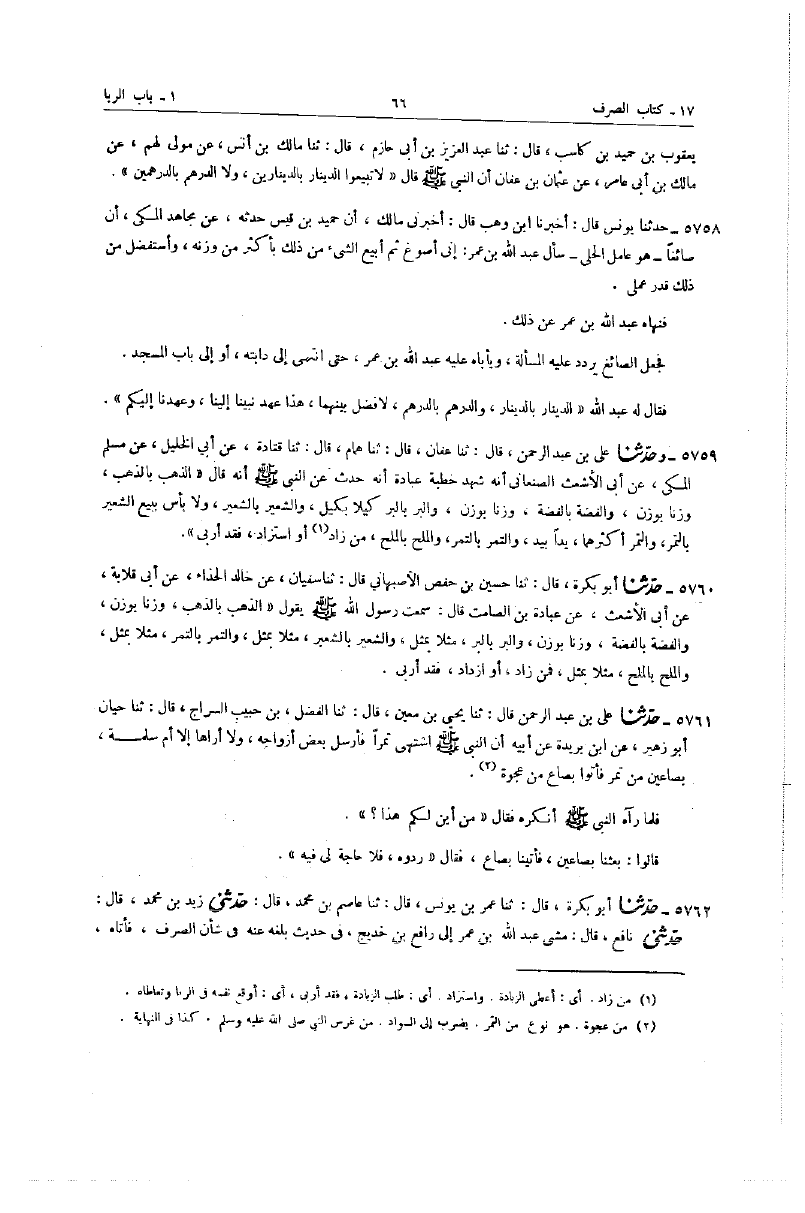 ١٧ - كتاب الصرف ٦٦ ١ - باب الربا
يعقوب بن حميد بن كاسب ، قال : ثنا عبد العزيز بن أبى حازم ، قال : ثنا مالك بن أنس ، عن مولى لهم ، عن
مالك بن أبى عامر ، عن عثمان بن عفان أن النبي ﷺ قال « لاتبيعوا الدينار بالدينارين ، ولا الدرهم بالدرهمين » .
٥٧٥٨ - حدثنا يونس قال : أخبرنا ابن وهب قال : أخبرنى مالك ، أن حميد بن قيس حدثه ، عن مجاهد المكى ، أن
صائغاً - هو عامل الحلى - سأل عبد الله بن عمر : إنى أصوغ ثم أبيع الشىء من ذلك بأكثر من وزنه ، وأستفضل من
ذلك قدر عملى .
فنهاه عبد الله بن عمر عن ذلك .
فجعل الصائغ يردد عليه المسألة ، ويأباه عليه عبد الله بن عمر ، حتى انتهى إلى دابته ، أو إلى باب المسجد .
فقال له عبد الله « الدينار بالدينار ، والدرهم بالدرهم ، لافضل بينهما ، هذا عهد نبينا إلينا ، وعهدنا إليكم » .
٥٧٥٩ - وحدثنا على بن عبد الرحمن ، قال : ثنا عفان ، قال : ثنا همام ، قال : ثنا قتادة ، عن أبي الخليل ، عن مسلم
المكى ، عن أبى الأشعث الصنعانى أنه شهد خطبة عبادة أنه حدث عن النبي ﷺ أنه قال « الذهب بالذهب ،
وزنا بوزن ، والفضة بالفضة ، وزنا بوزن ، والبر بالبر كيلا بكيل ، والشعير بالشعير ، ولا بأس ببيع الشعير
بالتمر ، والتمر أكثرهما ، يداً بيد ، والتمر بالتمر ، والملح بالملح ، من زاد (١) أو استزاد ، فقد أربى » .
٥٧٦٠ - حدثنا أبو بكرة ، قال : ثنا حسين بن حفص الأصبهاني قال : ثنا سفيان ، عن خالد الحذاء ، عن أبى قلابة ،
عن أبى الأشعث ، عن عبادة بن الصامت قال : سمعت رسول الله ﷺ يقول « الذهب بالذهب ، وزنا بوزن ،
والفضة بالفضة ، وزنا بوزن ، والبر بالبر ، مثلا بمثل ، والشعير بالشعير ، مثلا بمثل ، والتمر بالتمر ، مثلا بمثل ،
والملح بالملح ، مثلا بمثل ، فمن زاد ، أو ازداد ، فقد أربى .
٥٧٦١ - حدثنا على بن عبد الرحمن قال : ثنا يحيى بن معين ، قال : ثنا الفضل ، بن حبيب السراج ، قال : ثنا حيان
أبو زهير ، عن ابن بريدة عن أبيه أن النبي ﷺ اشتهى تمراً فأرسل بعض أزواجه ، ولا أراها إلا أم سلمة ،
بصاعين من تمر فأتوا بصاع من عجوة (٢) .
فلما رآه النبي ﷺ أنكره فقال « من أين لكم هذا ؟ » .
قالوا : بعثنا بصاعين ، فأتينا بصاع ، فقال « ردوه ، فلا حاجة لى فيه » .
٥٧٦٢ - حدثنا أبو بكرة ، قال : ثنا عمر بن يونس ، قال : ثنا عاصم بن محمد ، قال : حدثنى زيد بن محمد ، قال :
حدثنى نافع ، قال : مشى عبد الله بن عمر إلى رافع بن خديج ، فى حديث بلغه عنه فى شأن الصرف ، فأتاه ،
(١) من زاد . أى : أعطى الزيادة . واستزاد . أى : طلب الزيادة ، فقد أربى ، أى : أوقع نفسه فى الربا وتعاطاه .
(٢) من عجوة . هو نوع من التمر . يضرب إلى السواد . من غرس النبي صلى الله عليه وسلم . كذا فى النهاية .